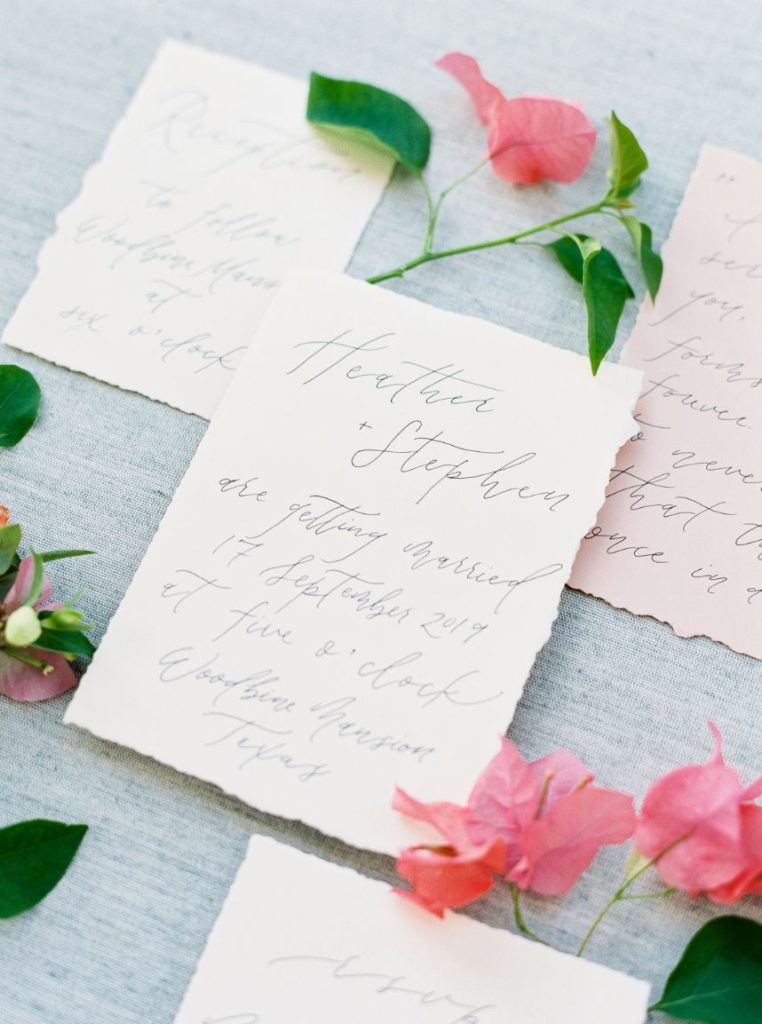 Reception
to follow
Woodbine Mans
at
six o'clock
Heather
+ Stephen
are getting married
17 September 2019
at five o'clock
Woodbine Mansion
Texas
"
I
you,
forms
forever.
to never
that th
once in a
rsvp